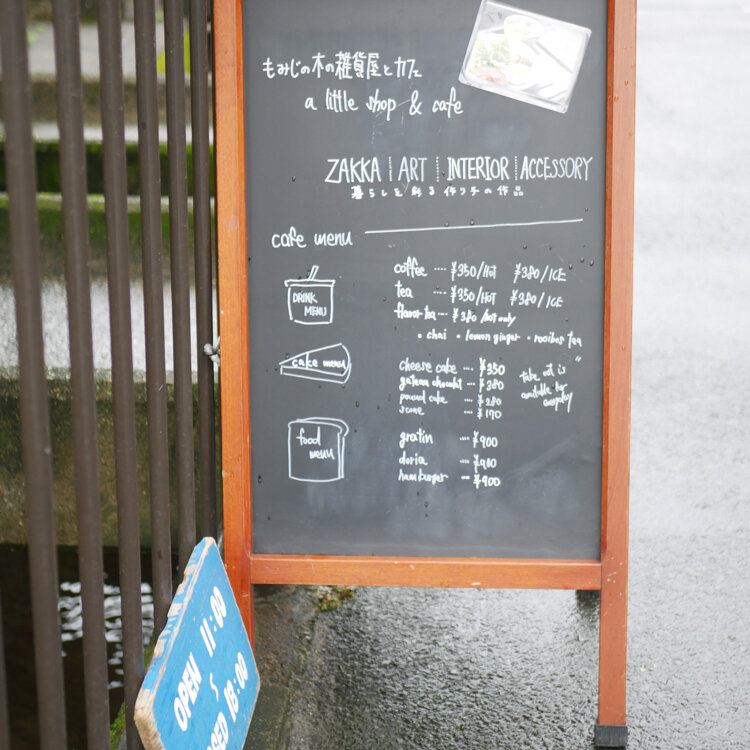 もみじの木の雑貨屋とカフェ
a little shop & cafe
ZAKKA ART INTERIOR ACCESSORY
暮らしを彩る作り手の作品
cafe menu
DRINK
MENU
coffee ¥350/HOT ¥380/ICE
tea ¥350/HOT ¥380/ICE
flavor tea ¥380/hot only
• chai • lemon ginger • rooibos tea
cake menu
cheese cake ¥350
gateau chocolat ¥380
pound cake ¥280
scone ¥170
take out is
available for
food
menu
gratin ¥900
doria ¥900
hamburger ¥900
OPEN 11:00
~
18:00